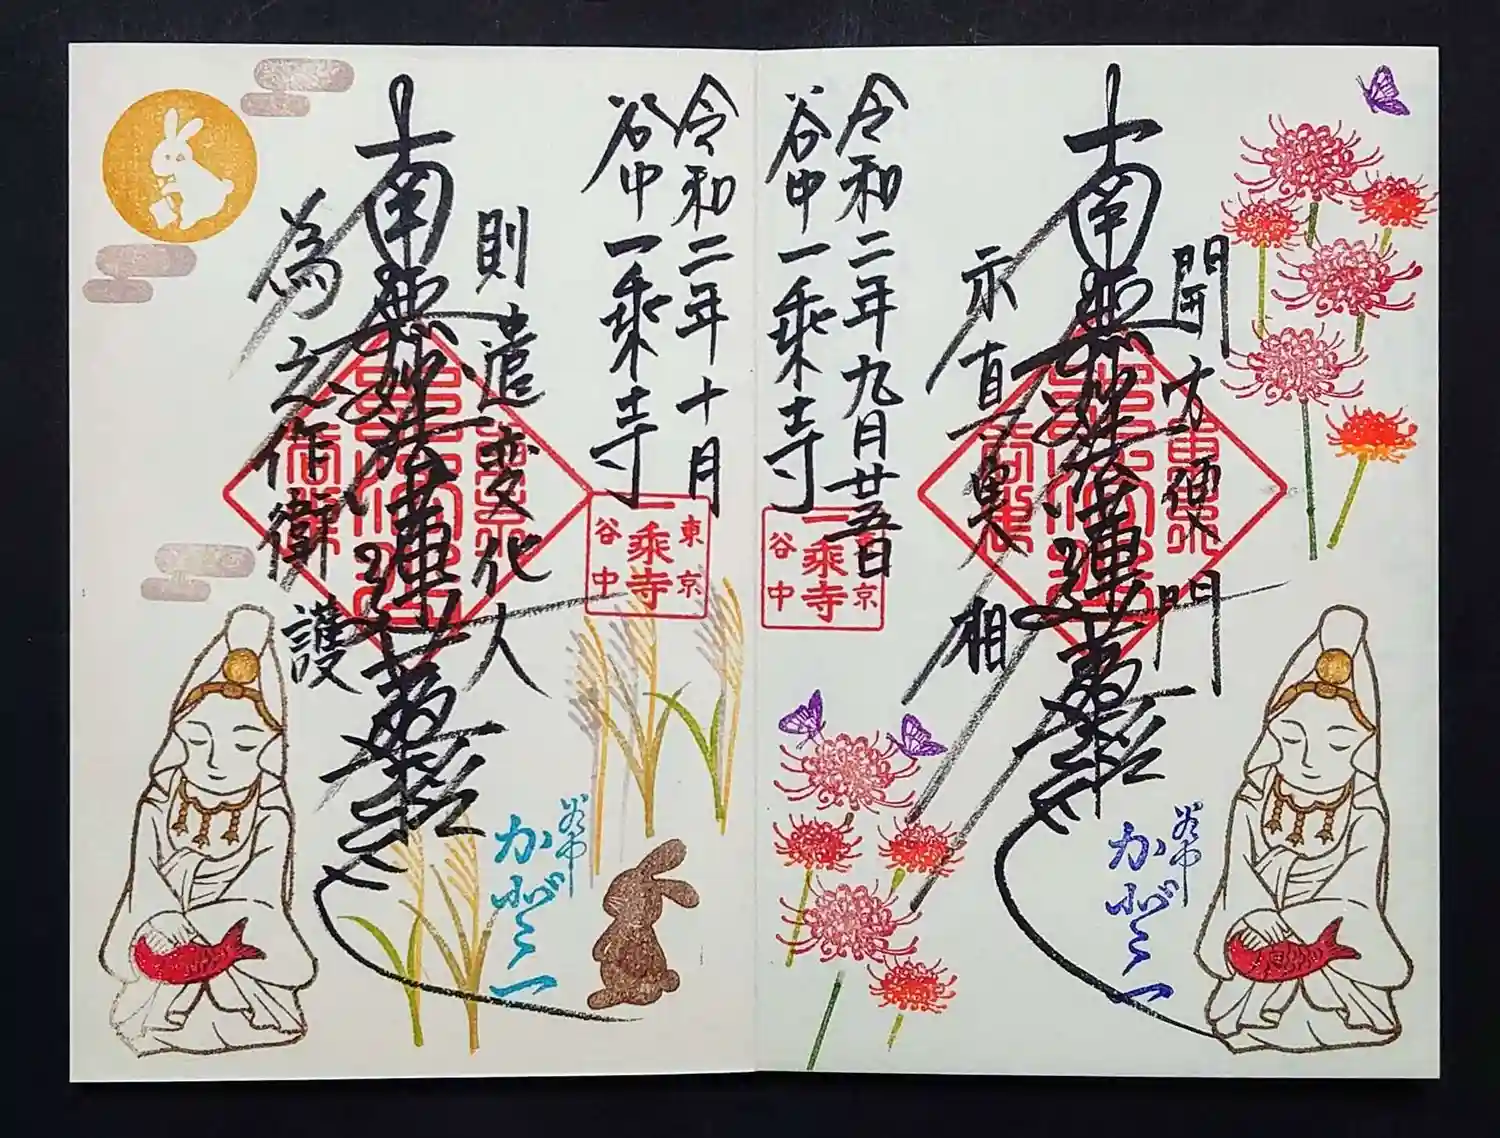 開方便門
南無妙法蓮華経
示真実相
令和二年九月廿五日
谷中一乗寺
東京
一乗寺
谷中
谷中
かんのん
令和二年十月
谷中一乗寺
東京
一乗寺
谷中
則遣変化人
南無妙法蓮華経
為之作衛護
谷中